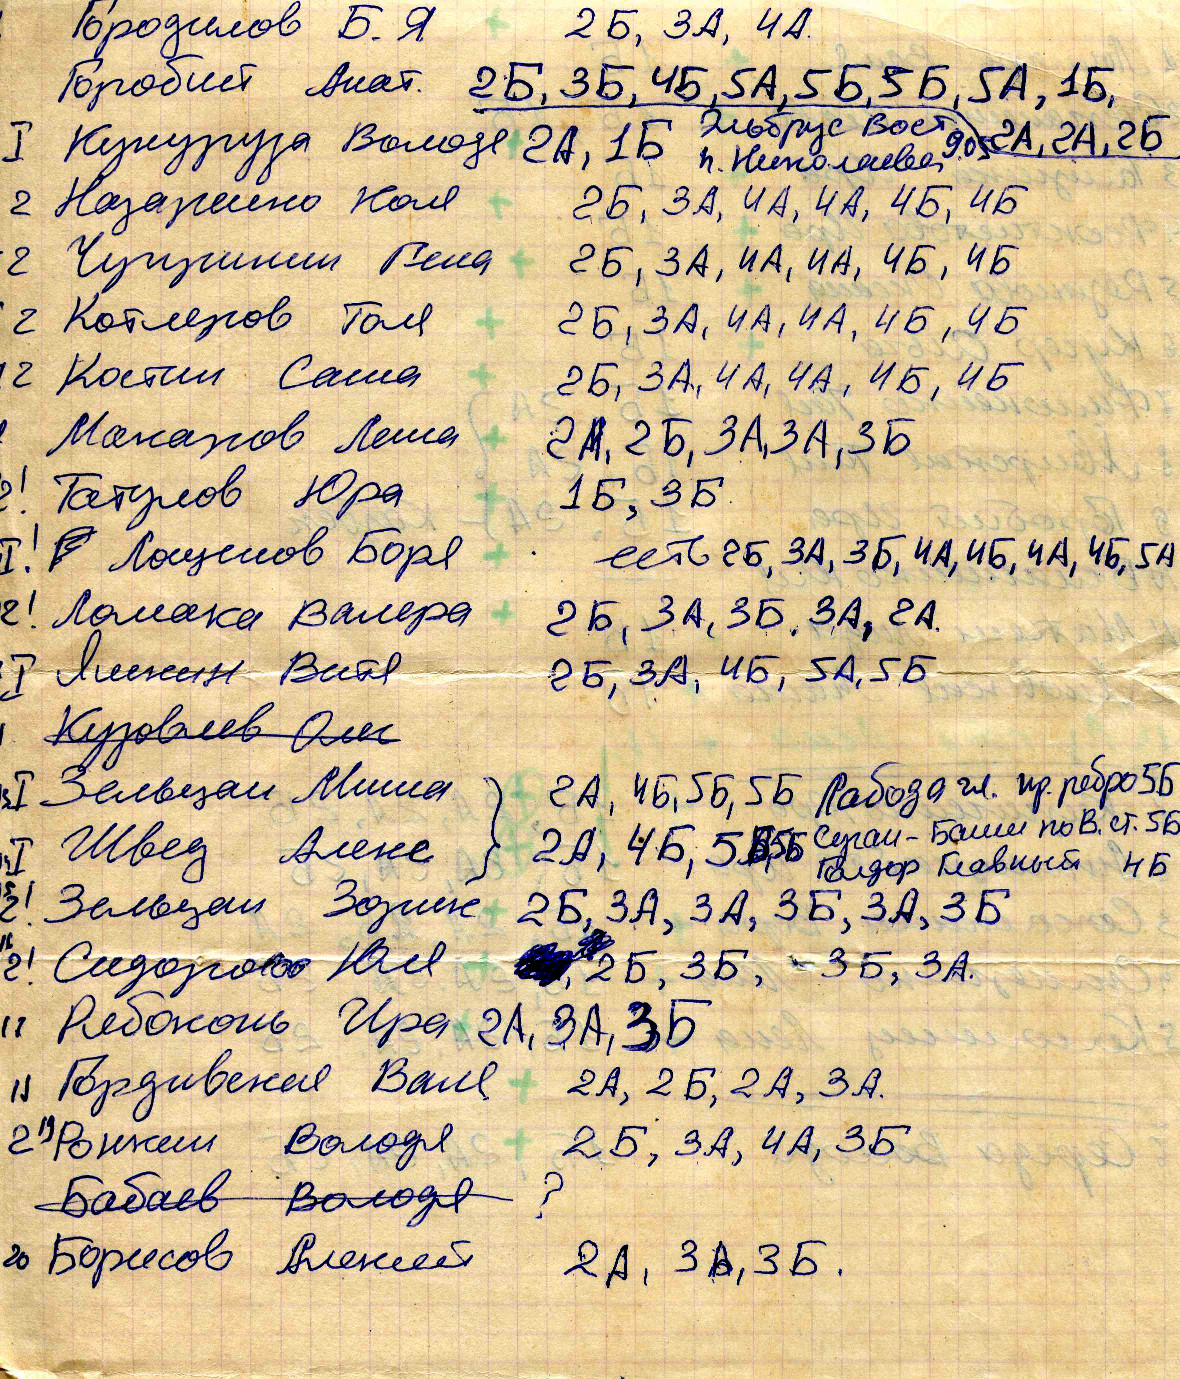 Городилов Б.Я 2Б, 3А, 4А.
Горобит Анат. 2Б, 3Б, 4Б, 5А, 5Б, 5Б, 5А, 1Б,
I Кукуруза Володя 2А, 1Б Эльбрус Вост 2А, 2А, 2Б
п. Николаева 905
2 Назаренко Коля 2Б, 3А, 4А, 4А, 4Б, 4Б
2 Чупринин Гена 2Б, 3А, 4А, 4А, 4Б, 4Б
2 Котляров Толя 2Б, 3А, 4А, 4А, 4Б, 4Б
2 Костин Саша 2Б, 3А, 4А, 4А, 4Б, 4Б
Макаров Леша 2А, 2Б, 3А, 3А, 3Б
2! Татулов Юра 1Б, 3Б.
I! Лащенов Боря есть 2Б, 3А, 3Б, 4А, 4Б, 4А, 4Б, 5А
2! Ломака Валера 2Б, 3А, 3Б, 3А, 2А.
I Якин Витя 2Б, 3А, 4Б, 5А, 5Б
Кузовлев Олег
I Зельцан Миша 2А, 4Б, 5Б, 5Б Рабода гл. пр. ребро 5Б
I Швед Алекс 2А, 4Б, 5Б, 5Б Суган-Баши по В. ст. 5Б
Главный 4Б
2! Зельцан Зорик 2Б, 3А, 3А, 3Б, 3А, 3Б
2! Сидорова Юля 2Б, 3Б, 3Б, 3А.
Рябоконь Ира 2А, 3А, 3Б
Гордивская Валя 2А, 2Б, 2А, 3А.
2 19 Ронкин Володя 2Б, 3А, 4А, 3Б
Бабаев Володя ?
20 Борисов Алексей 2А, 3А, 3Б.